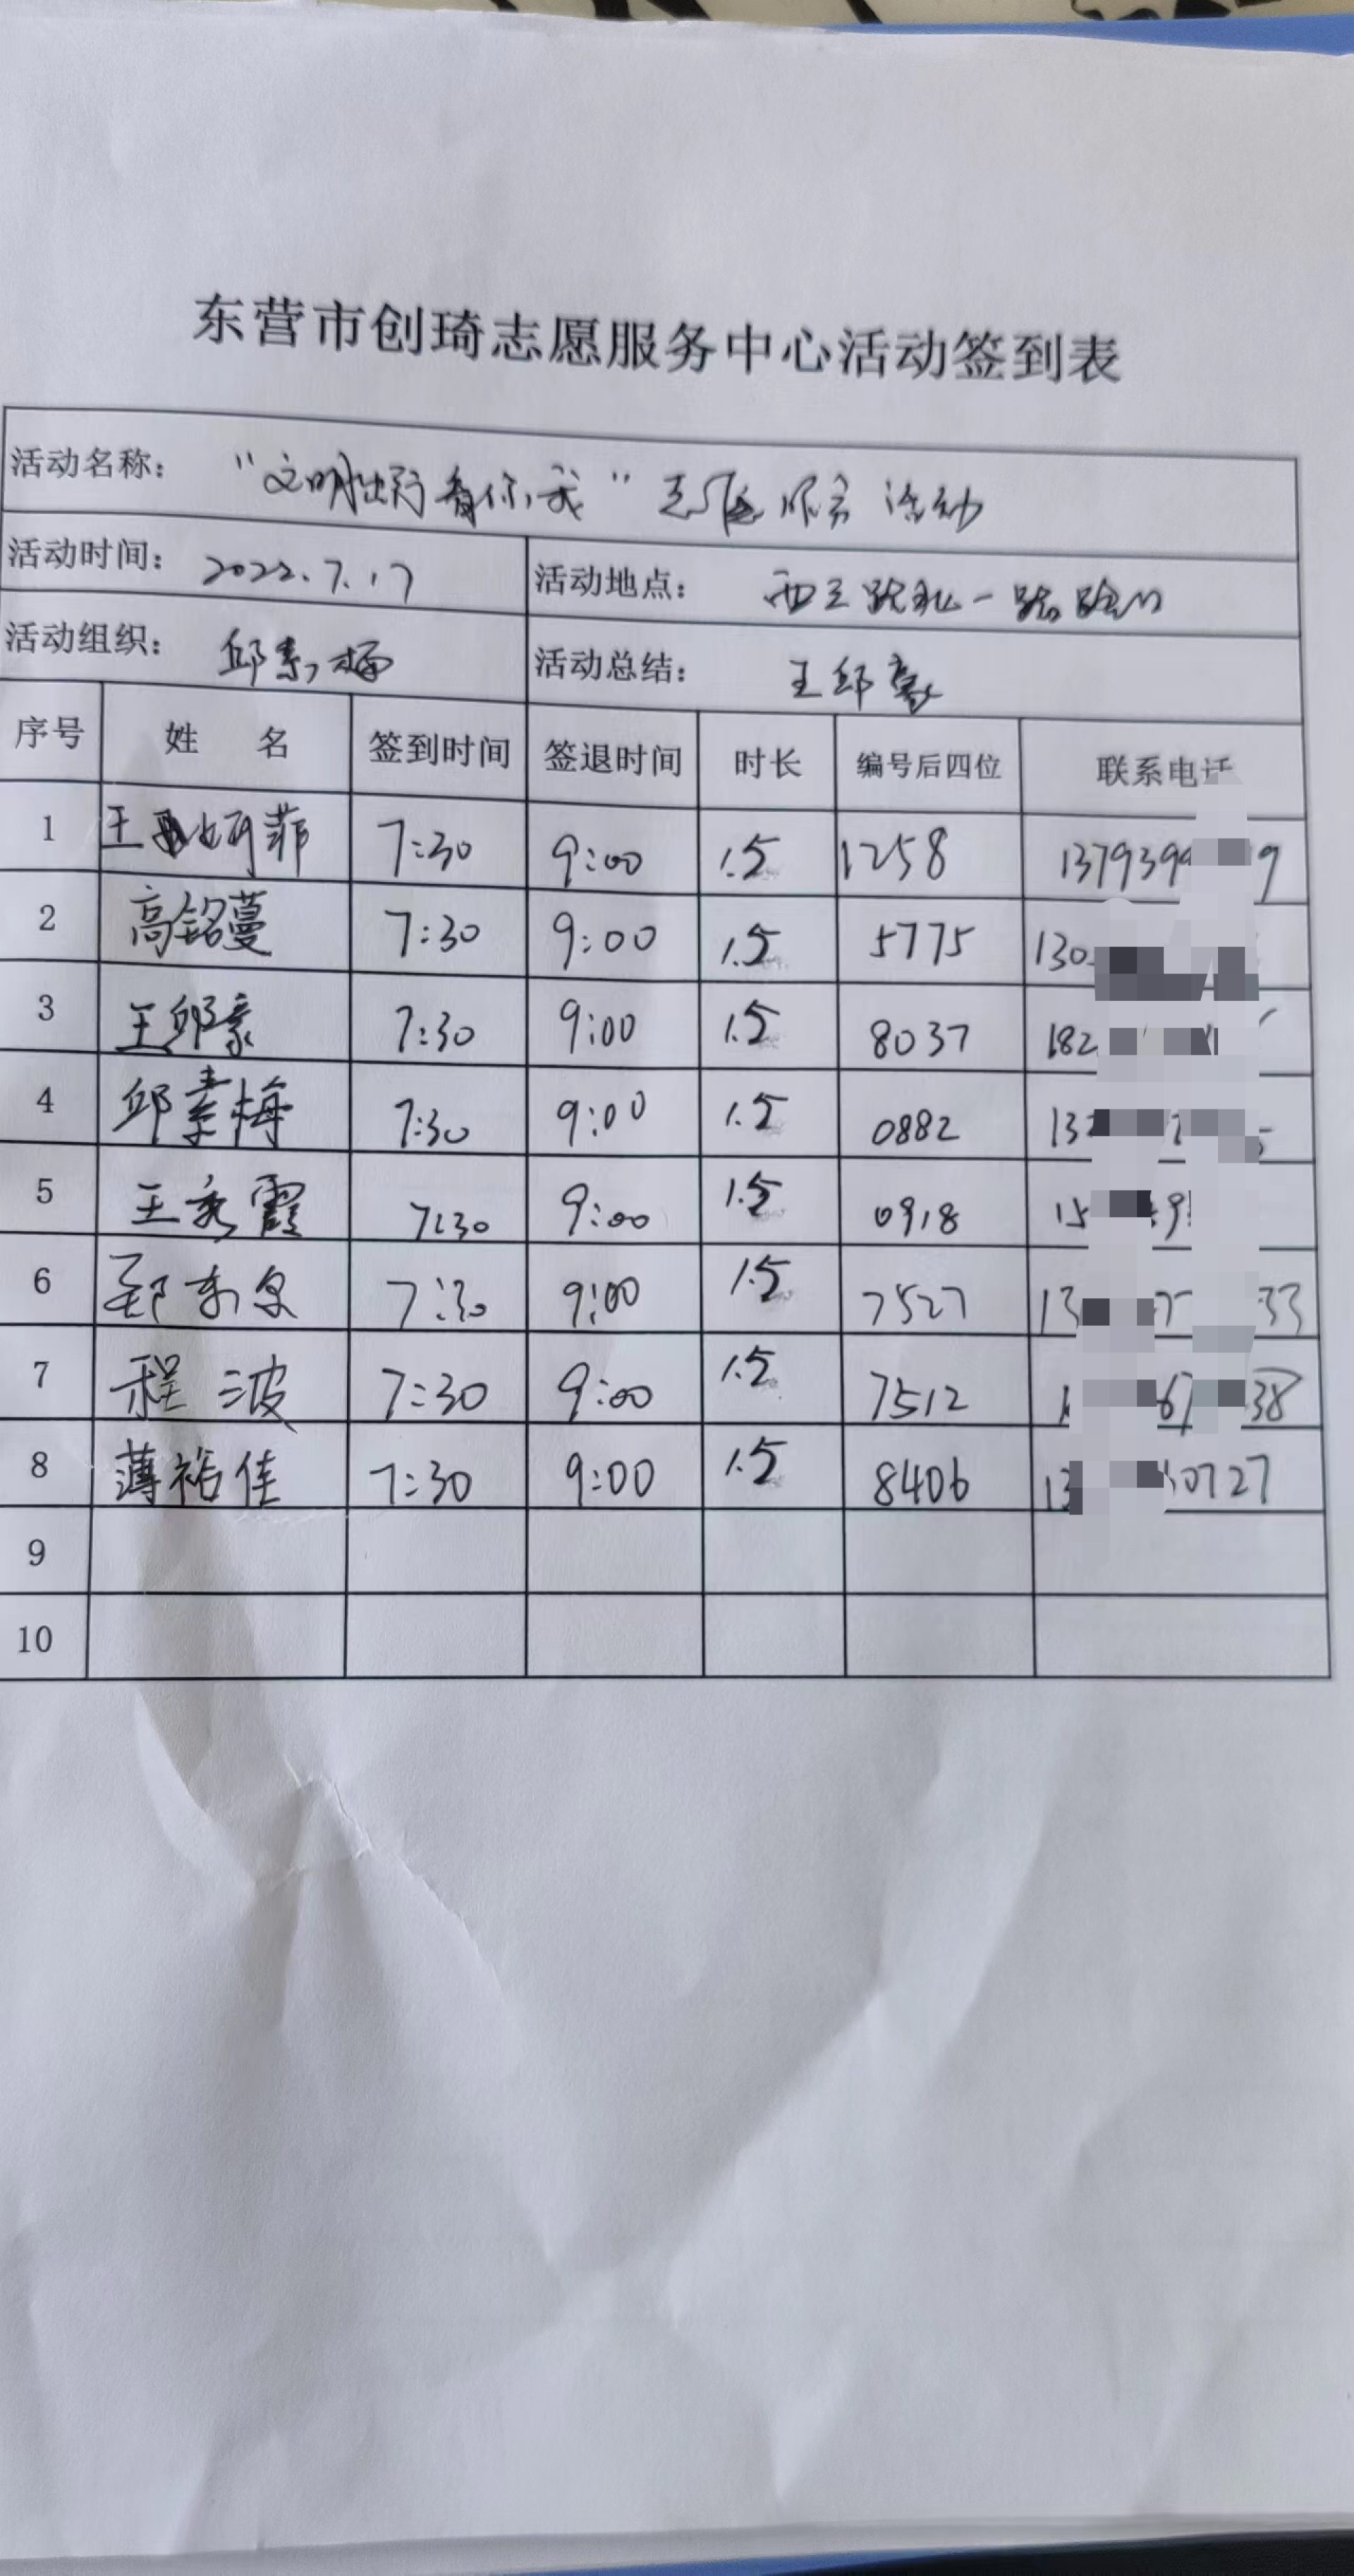 东营市创琦志愿服务中心活动签到表
活动名称： “文明出行看你我”志愿服务活动
活动时间： 2022.7.17 活动地点： 西三路北一路路口
活动组织： 邱素梅 活动总结： 王邱豪
序号 姓 名 签到时间 签退时间 时长 编号后四位 联系电话
1 7:30 9:00 1.5 1258 1379399 9
2 高铭蔓 7:30 9:00 1.5 5775 130
3 王邱豪 7:30 9:00 1.5 8037 182
4 邱素梅 7:30 9:00 1.5 0882 13
5 王秀霞 7:30 9:00 1.5 0918 15
6 7:30 9:00 1.5 7527 13 33
7 程波 7:30 9:00 1.5 7512 1 67 38
8 薄裕佳 7:30 9:00 1.5 8406 13 0727
9
10